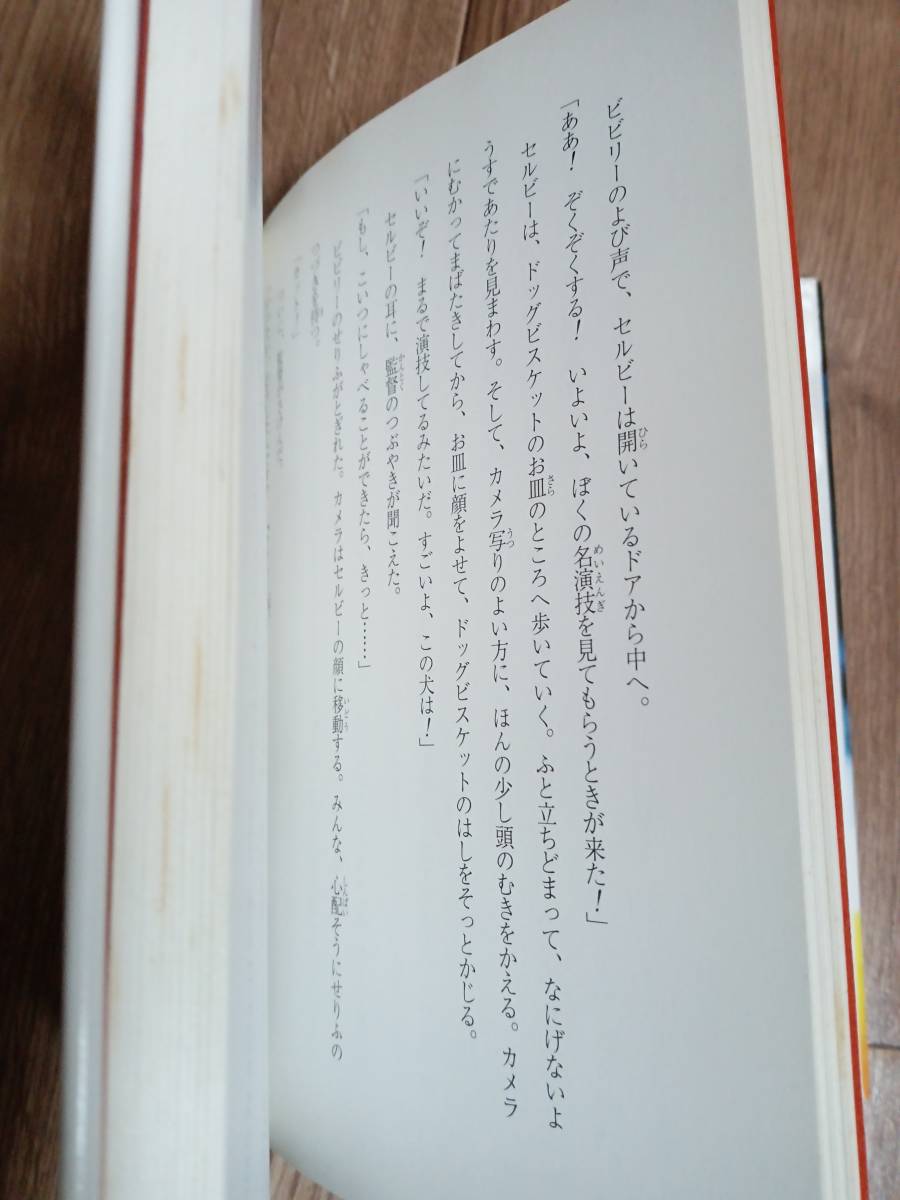 ビビリーのよび声で、セルビーは開いているドアから中へ。
「ああ！　ぞくぞくする！　いよいよ、ぼくの名演技を見てもらうときが来た！」
セルビーは、ドッグビスケットのお皿のところへ歩いていく。ふと立ちどまって、なにげないよ
うすであたりを見まわす。そして、カメラ写りのよい方に、ほんの少し頭のむきをかえる。カメラ
にむかってまばたきしてから、お皿に顔をよせて、ドッグビスケットのはしをそっとかじる。
「いいぞ！　まるで演技してるみたいだ。すごいよ、この犬は！」
セルビーの耳に、監督のつぶやきが聞こえた。
「もし、こいつにしゃべることができたら、きっと……」
ビビリーのせりふがとぎれた。カメラはセルビーの顔に移動する。みんな、心配そうにせりふの
つづきを待つ。